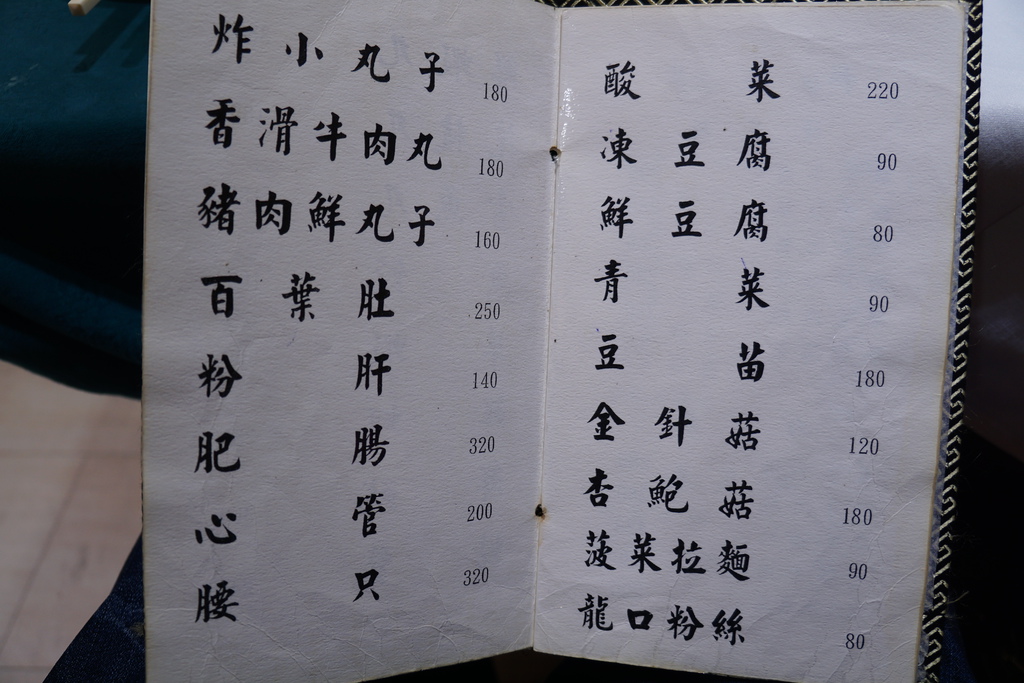 炸小丸子 180
香滑牛肉丸 180
豬肉鮮丸子 160
百葉肚 250
粉肝 140
肥腸 320
心管 200
腰只 320
酸菜 220
凍豆腐 90
鮮豆腐 80
青菜 90
豆苗 180
金針菇 120
杏鮑菇 180
菠菜拉麵 90
龍口粉絲 80